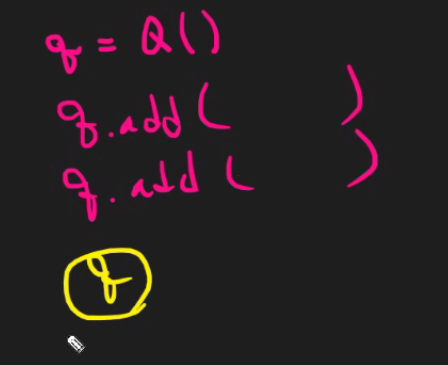 q = Q()
q.add( )
q.add( )
q